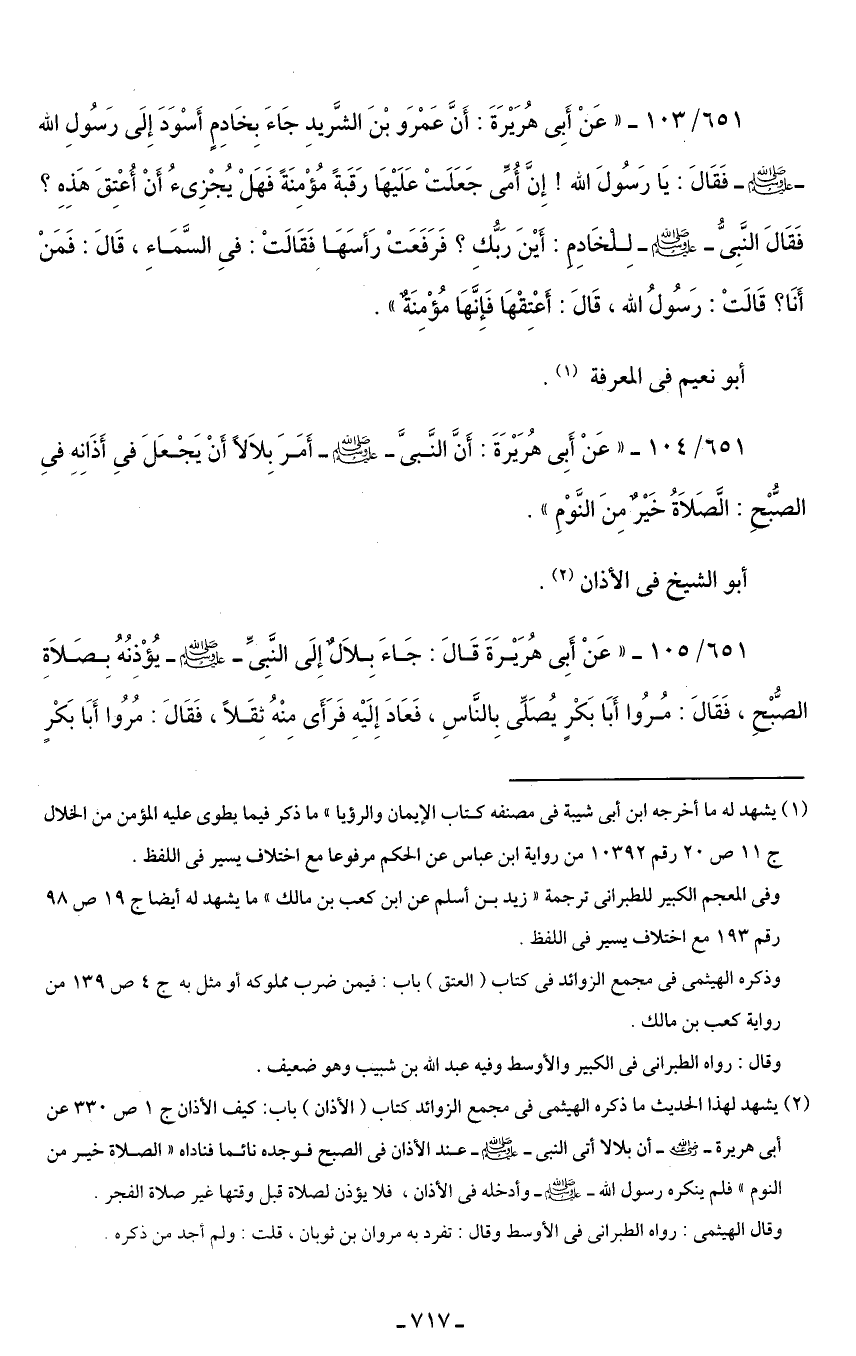 ٦٥١/ ١٠٣ ـ « عَنْ أَبِى هُرَيْرَةَ : أَنَّ عَمْرَو بْنَ الشَّرِيدِ جَاءَ بِخَادِمٍ أَسْوَدَ إِلَى رَسُولِ الله
ـ ﷺ ـ فَقَالَ : يَا رَسُولَ الله ! إِنَّ أُمِّى جَعَلَتْ عَلَيْهَا رَقَبَةً مُؤْمِنَةً فَهَلْ يُجْزِىءُ أَنْ أُعْتِقَ هَذِهِ ؟
فَقَالَ النَّبِىُّ ـ ﷺ ـ لِلْخَادِمِ : أَيْنَ رَبُّكِ ؟ فَرَفَعَتْ رَأسَهَا فَقَالَتْ : فِى السَّمَاءِ ، قَالَ : فَمَنْ
أَنَا؟ قَالَتْ : رَسُولُ الله ، قَالَ : أَعْتِقْهَا فَإِنَّهَا مُؤْمِنَةٌ » .
أبو نعيم فى المعرفة (١) .
٦٥١/ ١٠٤ ـ « عَنْ أَبِى هُرَيْرَةَ : أَنَّ النَّبِىَّ ـ ﷺ ـ أَمَرَ بِلاَلاً أَنْ يَجْعَلَ فِى أَذَانِهِ فِى
الصُّبْحِ : الصَّلاَةُ خَيْرٌ مِنَ النَّوْمِ » .
أبو الشيخ فى الأذان (٢) .
٦٥١/ ١٠٥ ـ « عَنْ أَبِى هُرَيْرَةَ قَالَ : جَاءَ بِلاَلٌ إِلَى النَّبِىِّ ـ ﷺ ـ يُؤْذِنُهُ بِصَلاَةِ
الصُّبْحِ ، فَقَالَ : مُرُوا أَبَا بَكْرٍ يُصَلِّى بِالنَّاسِ ، فَعَادَ إِلَيْهِ فَرَأَى مِنْهُ ثِقَلاً ، فَقَالَ : مُرُوا أَبَا بَكْرٍ
(١) يشهد له ما أخرجه ابن أبى شيبة فى مصنفه كتاب الإيمان والرؤيا » ما ذكر فيما يطوى عليه المؤمن من الخلال
ج ١١ ص ٢٠ رقم ١٠٣٩٢ من رواية ابن عباس عن الحكم مرفوعا مع اختلاف يسير فى اللفظ .
وفى المعجم الكبير للطبرانى ترجمة « زيد بن أسلم عن ابن كعب بن مالك » ما يشهد له أيضا ج ١٩ ص ٩٨
رقم ١٩٣ مع اختلاف يسير فى اللفظ .
وذكره الهيثمى فى مجمع الزوائد فى كتاب ( العتق ) باب : فيمن ضرب مملوكه أو مثل به ج ٤ ص ١٣٩ من
رواية كعب بن مالك .
وقال : رواه الطبرانى فى الكبير والأوسط وفيه عبد الله بن شبيب وهو ضعيف .
(٢) يشهد لهذا الحديث ما ذكره الهيثمى فى مجمع الزوائد كتاب ( الأذان ) باب: كيف الأذان ج ١ ص ٣٣٠ عن
أبى هريرة ـ رضي الله عنه ـ أن بلالا أتى النبى ـ ﷺ ـ عند الأذان فى الصبح فوجده نائما فناداه « الصلاة خير من
النوم » فلم ينكره رسول الله ـ ﷺ ـ وأدخله فى الأذان ، فلا يؤذن لصلاة قبل وقتها غير صلاة الفجر .
وقال الهيثمى : رواه الطبرانى فى الأوسط وقال : تفرد به مروان بن ثوبان ، قلت : ولم أجد من ذكره .
ـ ٧١٧ ـ